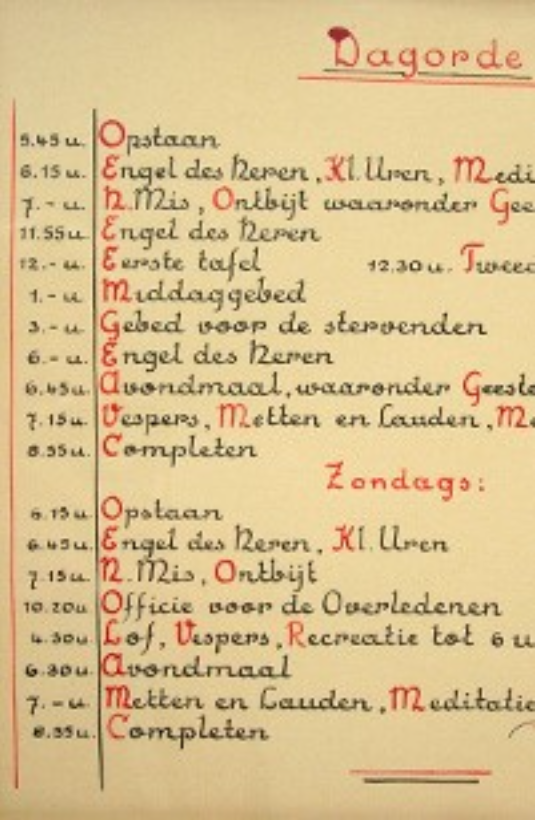 Dagorde
5.45 u. Opstaan
6.15 u. Engel des Heren, Kl. Uren, Medi
7.- u. H. Mis, Ontbijt waaronder Gee
11.55 u. Engel des Heren
12.- u. Eerste tafel 12.30 u. Tweed
1.- u. Middaggebed
3.- u. Gebed voor de stervenden
6.- u. Engel des Heren
6.45 u. Avondmaal, waaronder Geeste
7.15 u. Vespers, Metten en Lauden, Me
8.35 u. Completen
Zondags:
6.15 u. Opstaan
6.45 u. Engel des Heren, Kl. Uren
7.15 u. H. Mis, Ontbijt
10.20 u Officie voor de Overledenen
4.30 u. Lof, Vespers, Recreatie tot 6 u
6.30 u. Avondmaal
7.- u. Metten en Lauden, Meditatie
8.35 u. Completen